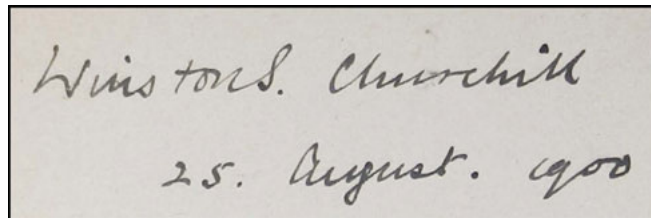 Winston S. Churchill
25. August. 1900